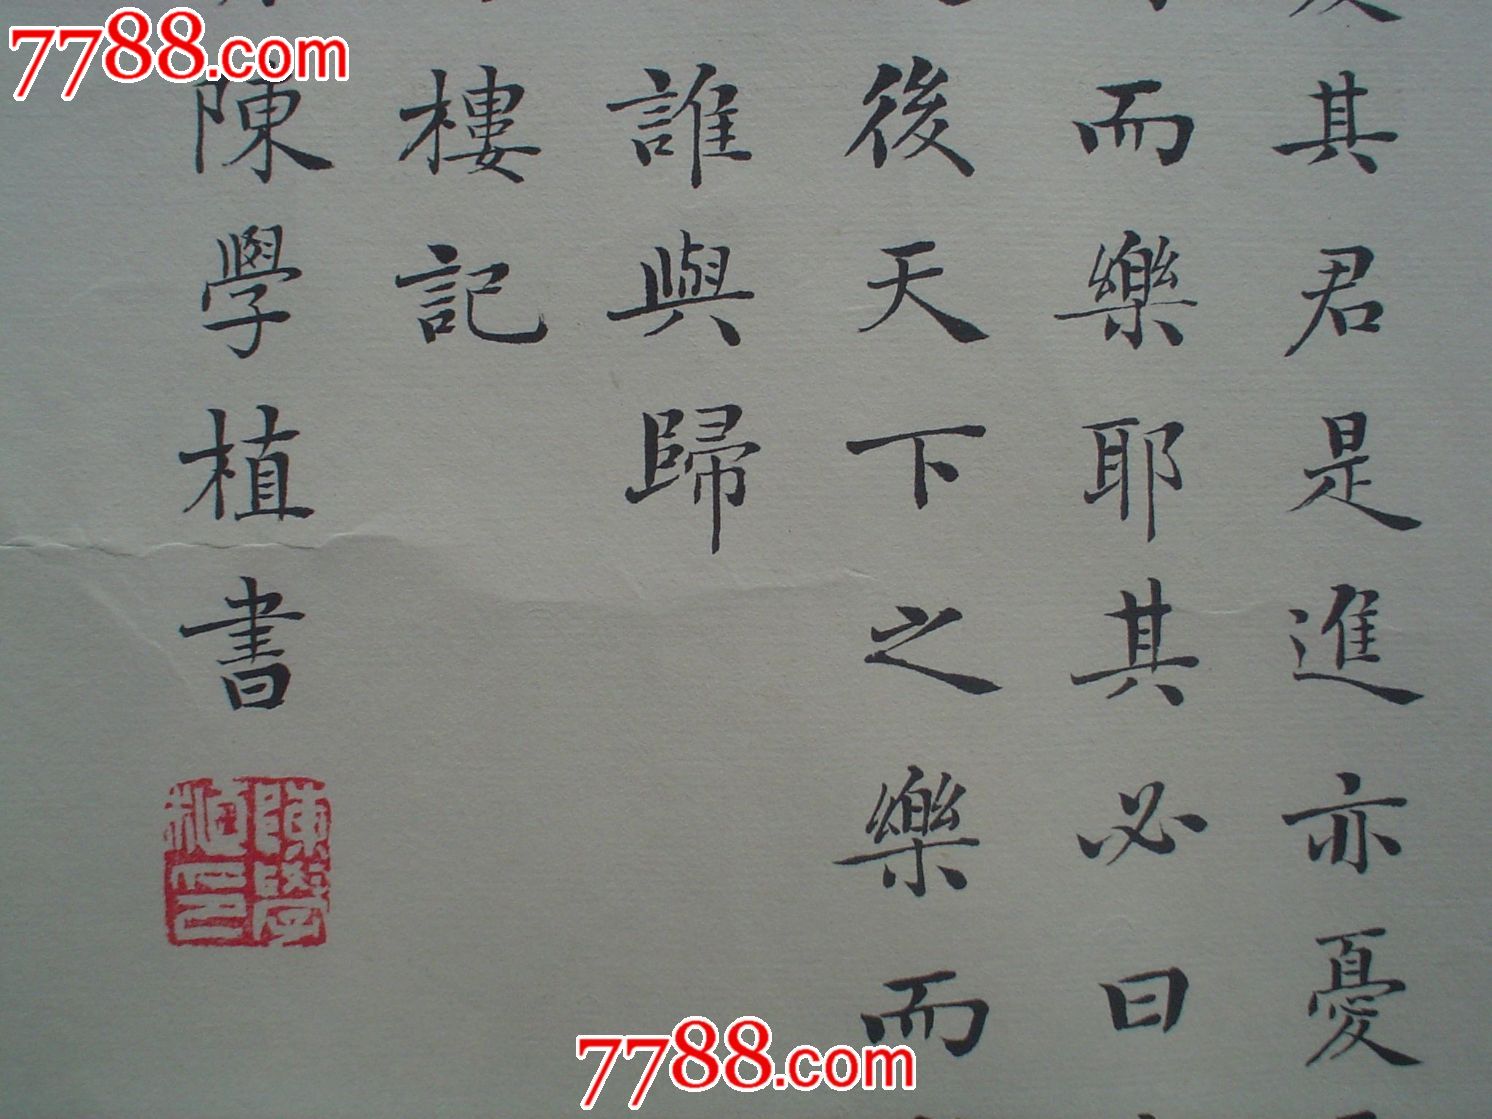 7788.com
其君是進亦憂
而樂耶其必曰
後天下之樂而
誰與歸
樓記
陳學植書
陳學植印
7788.com